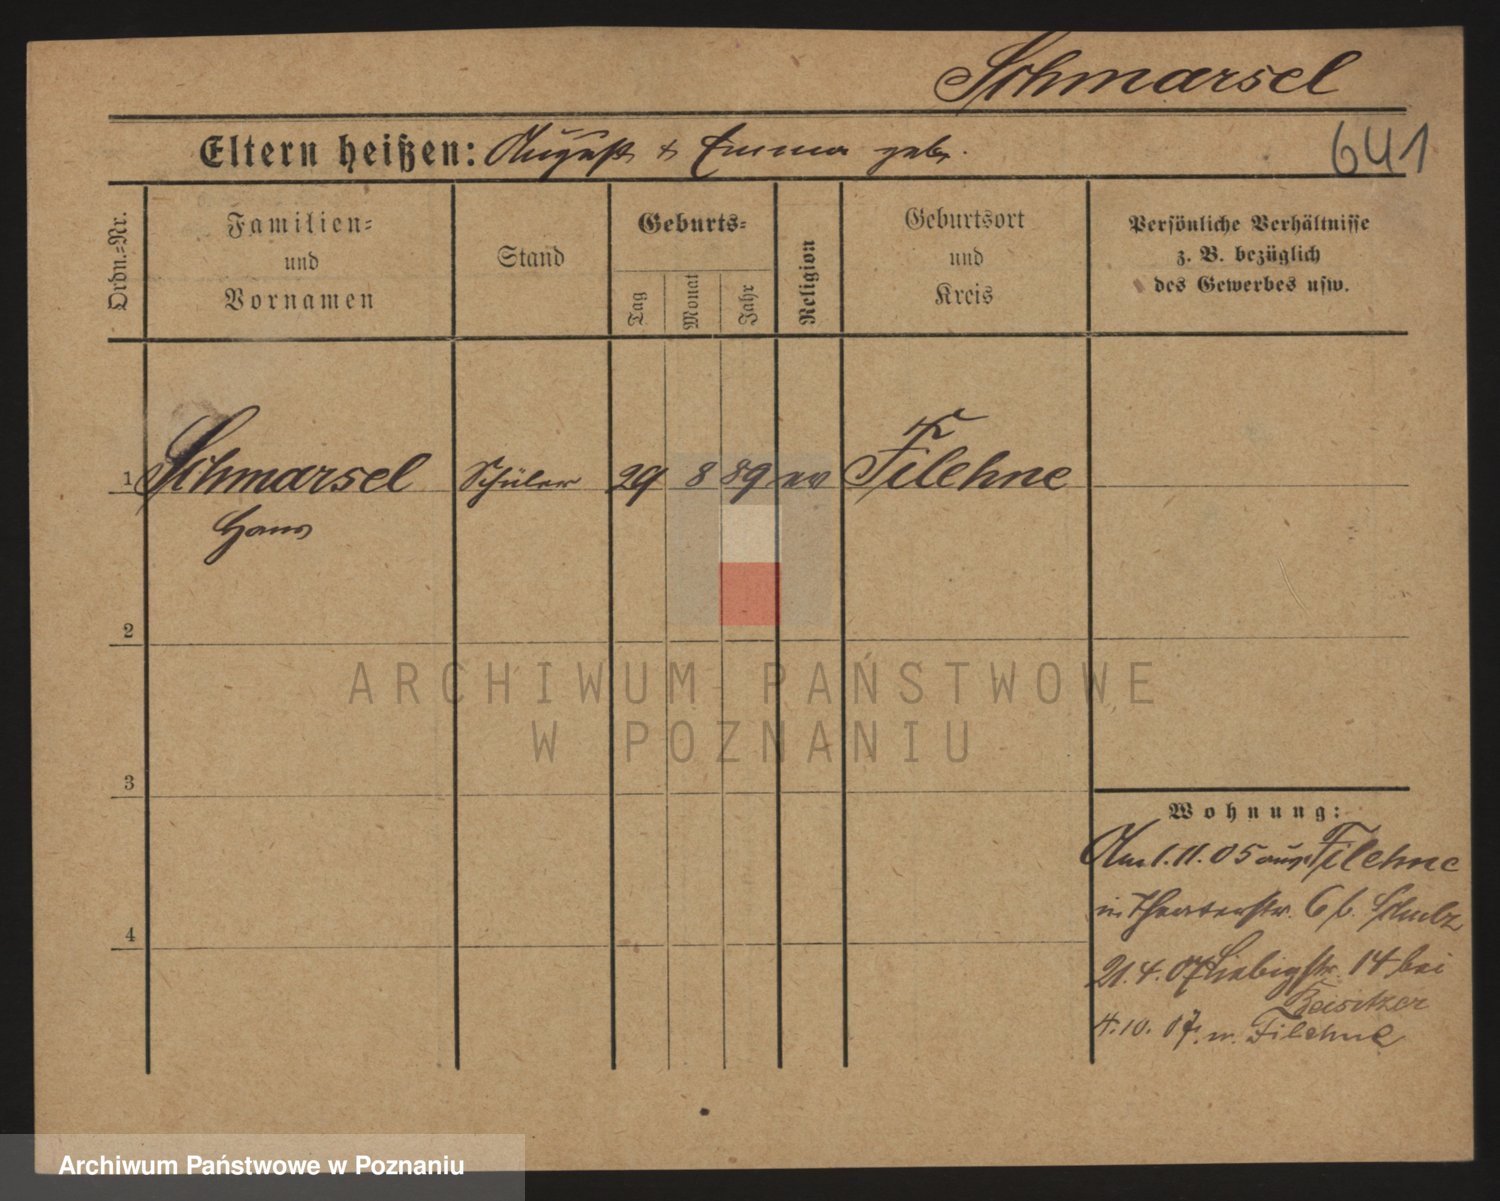 Schmarsel
Eltern heißen: August & Emma geb.
641
Ordn.=Nr.
Familien=
und
Vornamen
Stand
Geburts=
Tag
Monat
Jahr
Religion
Geburtsort
und
Kreis
Persönliche Verhältnisse
z. B. bezüglich
des Gewerbes usw.
1 Schmarsel Schüler 29 8 89 ev Filehne
Hans
2
3
4
ARCHIWUM PAŃSTWOWE
W POZNANIU
Wohnung:
Am 1. 11. 05 aus Filehne
in Theaterstr. 6 b. Schulz
21. 4. 07 Liebigstr. 14 bei
Beisitzer
4. 10. 07. n. Filehne
Archiwum Państwowe w Poznaniu